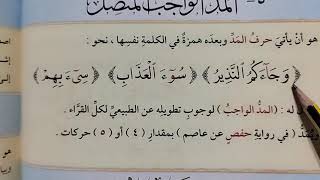 المدّ الواجب المتّصل
هو أنْ يأتيَ حرفُ المَدِّ وبعدَه همزةٌ في الكلمةِ نفسِها ، نحو :
﴿ وَجَآءَكُمُ ٱلنَّذِيرُ ﴾ ﴿ سُوٓءَ ٱلْعَذَابِ ﴾ ﴿ سِيٓءَ بِهِمْ ﴾
له : (المدُّ الواجبُ) لوجوبِ تطويلِه عن الطبيعيِّ لكلِّ القرَّاء .
ويُمَدُّ ( في روايةِ حفصٍ عن عاصم ) بمقدارِ ( ٤ ) أو ( ٥ ) حركات .